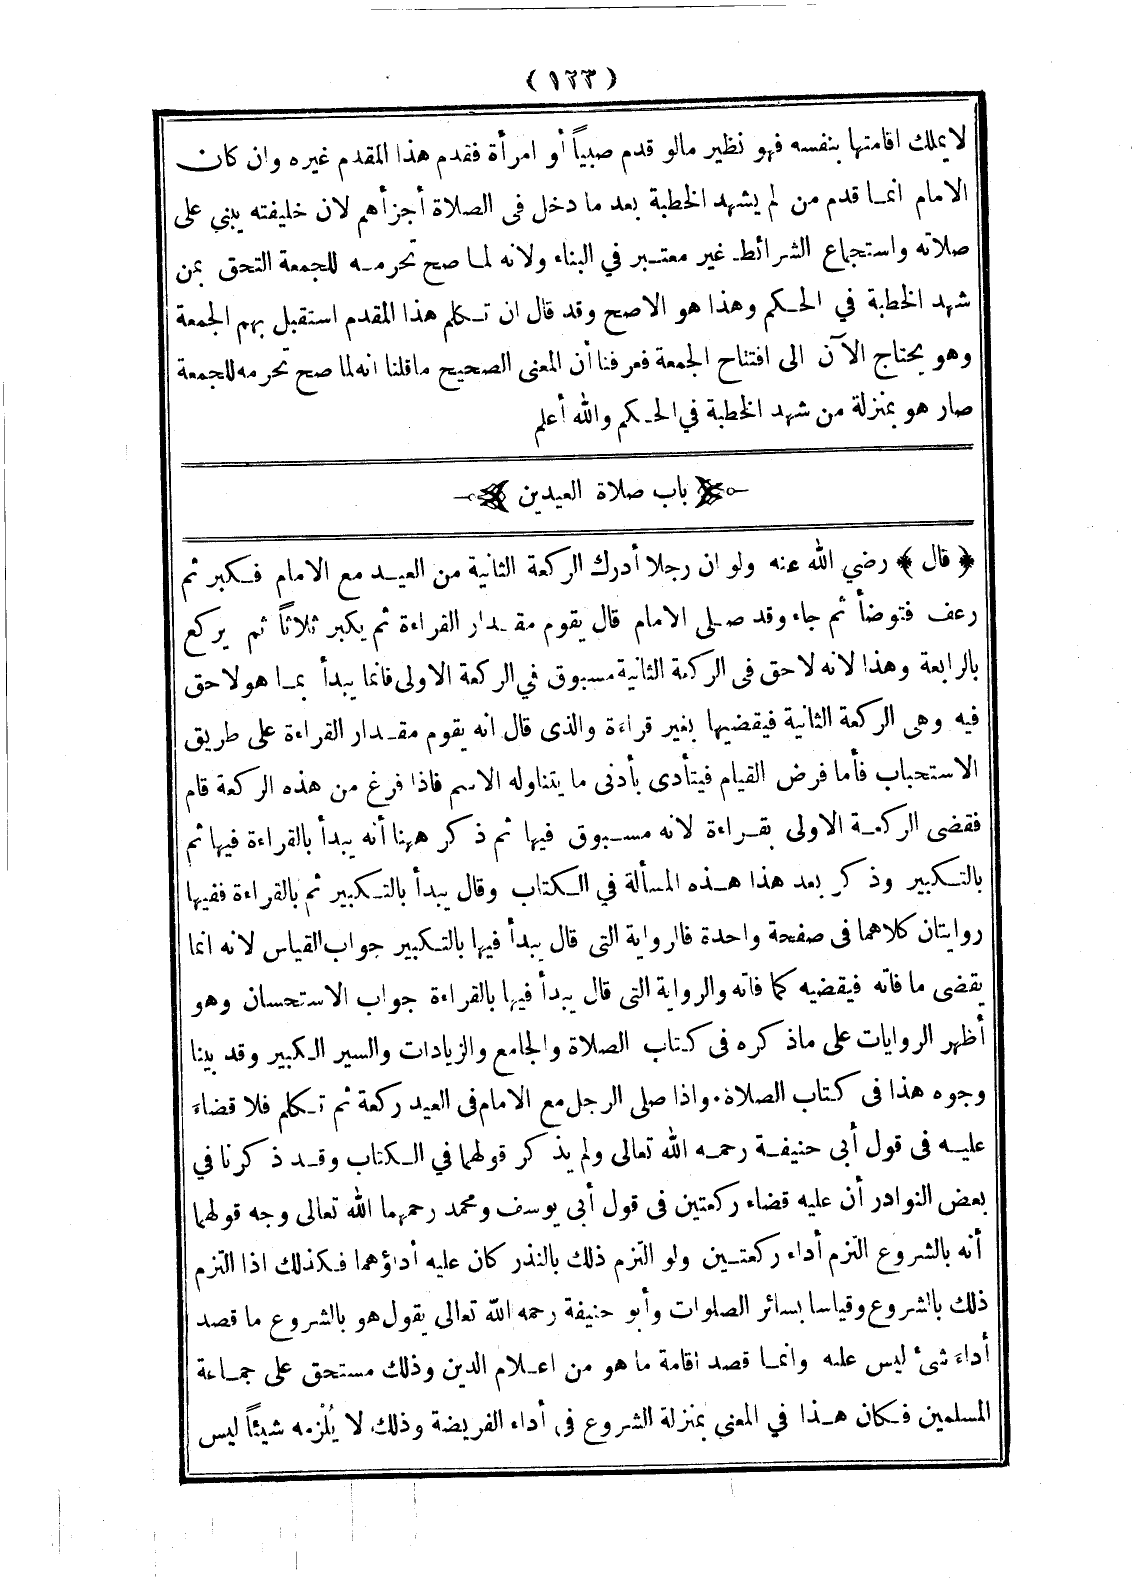 (١٢٣)
لايملك اقامتها بنفسه فهو نظير مالو قدم صبياً أو امرأة فقدم هذا المقدم غيره وان كان
الامام انما قدم من لم يشهد الخطبة بعد ما دخل فى الصلاة أجزأهم لان خليفته يبني على
صلاته واستجماع الشرائط غير معتبر في البناء ولانه لما صح تحرمه للجمعة التحق بمن
شهد الخطبة في الحكم وهذا هو الاصح وقد قال ان تكلم هذا المقدم استقبل بهم الجمعة
وهو يحتاج الآن الى افتتاح الجمعة فعرفنا أن المعنى الصحيح ماقلنا انه لما صح تحرمه للجمعة
صار هو بمنزلة من شهد الخطبة في الحكم والله أعلم
باب صلاة العيدين
﴿ قال ﴾ رضي الله عنه ولو ان رجلا أدرك الركعة الثانية من العيد مع الامام فكبر ثم
رعف فتوضأ ثم جاء وقد صلى الامام قال يقوم مقدار القراءة ثم يكبر ثلاثاً ثم يركع
بالرابعة وهذا لانه لاحق فى الركعة الثانية مسبوق في الركعة الاولى فانما يبدأ بما هو لاحق
فيه وهى الركعة الثانية فيقضيها بغير قراءة والذى قال انه يقوم مقدار القراءة على طريق
الاستحباب فأما فرض القيام فيتأدى بأدنى ما يتناوله الاسم فاذا فرغ من هذه الركعة قام
فقضى الركعة الاولى بقراءة لانه مسبوق فيها ثم ذكر ههنا أنه يبدأ بالقراءة فيها ثم
بالتكبير وذكر بعد هذا هذه المسألة في الكتاب وقال يبدأ بالتكبير ثم بالقراءة ففيها
روايتان كلاهما فى صفحة واحدة فالرواية التى قال يبدأ فيها بالتكبير جواب القياس لانه انما
يقضى ما فاته فيقضيه كما فاته والرواية التى قال يبدأ فيها بالقراءة جواب الاستحسان وهو
أظهر الروايات على ماذكره فى كتاب الصلاة والجامع والزيادات والسير الكبير وقد بينا
وجوه هذا فى كتاب الصلاة. واذا صلى الرجل مع الامام فى العيد ركعة ثم تكلم فلا قضاء
عليه فى قول أبي حنيفة رحمه الله تعالى ولم يذكر قولهما في الكتاب وقد ذكرنا في
بعض النوادر أن عليه قضاء ركعتين فى قول أبى يوسف ومحمد رحمهما الله تعالى وجه قولهما
أنه بالشروع التزم أداء ركعتين ولو التزم ذلك بالنذر كان عليه أداؤهما فكذلك اذا التزم
ذلك بالشروع وقياسا بسائر الصلوات وأبو حنيفة رحمه الله تعالى يقول هو بالشروع ما قصد
أداء شئ ليس عليه وانما قصد اقامة ما هو من اعلام الدين وذلك مستحق على جماعة
المسلمين فكان هذا في المعنى بمنزلة الشروع فى أداء الفريضة وذلك لا يُلْزمه شيئاً ليس